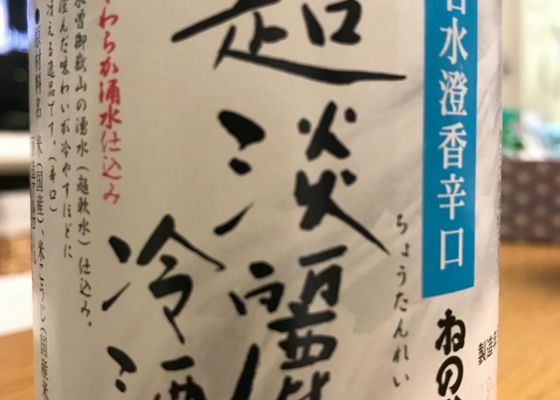 名水澄香辛口
ねの
製造
超淡麗
ちょうたんれい
冷酒
やわらか湧水仕込み
木曽御嶽山の湧水(超軟水)仕込み。
澄んだ味わいが冷やすほどに
冴える逸品です。(辛口)
●原材料名 米(国産)、米こうじ(国産米